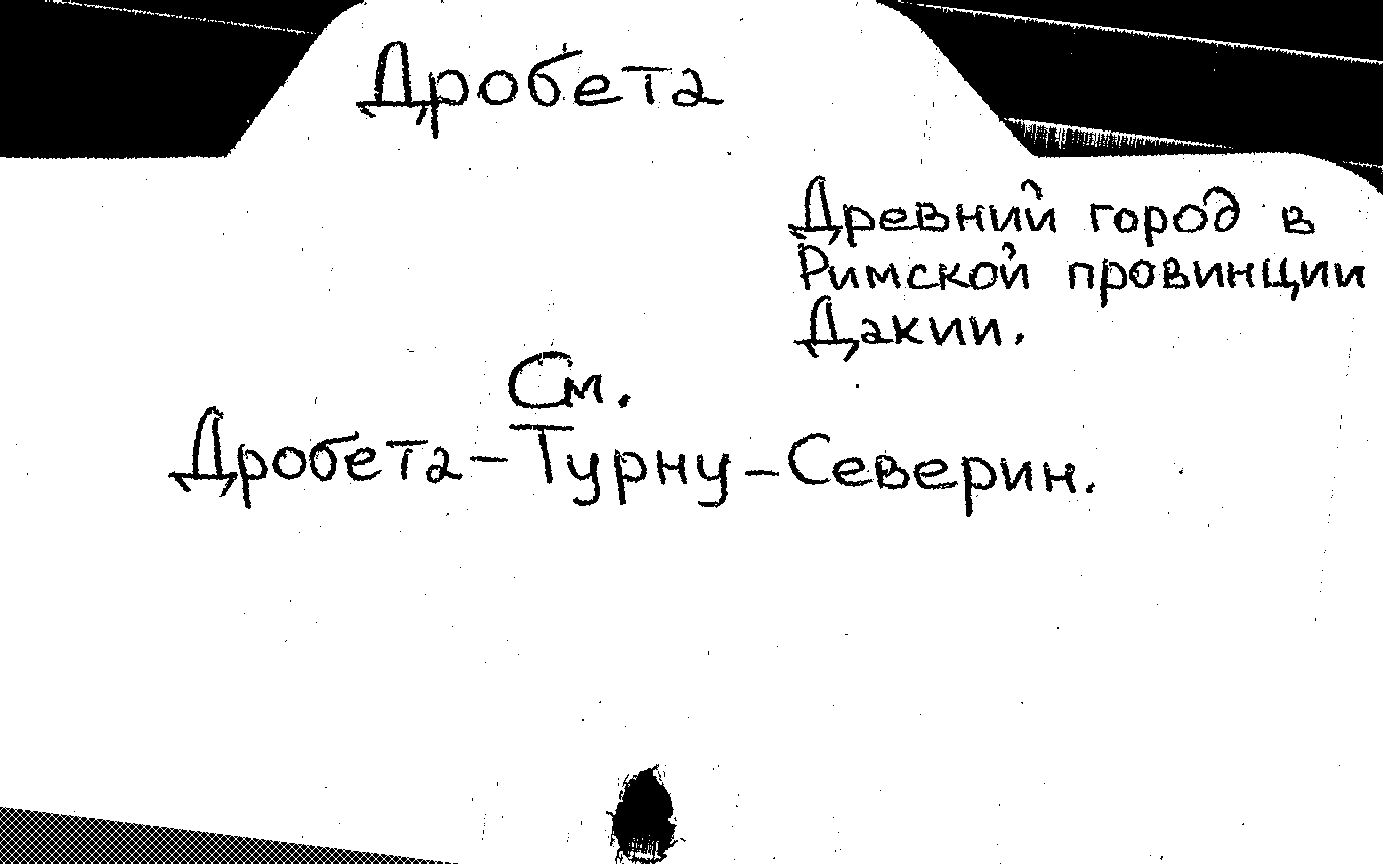 Дробета
Древний город в
Римской провинции
Дакии.
См.
Дробета-Турну-Северин.